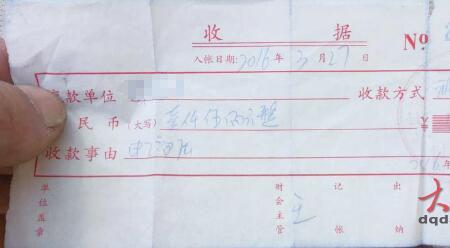 收 据
入帐日期:2016年 3月 27日 Nº
款单位 收款方式
民币(大写) 壹仟伍佰元整
收款事由
单位盖章 财会主管 王 记帐 出纳
大
dqd